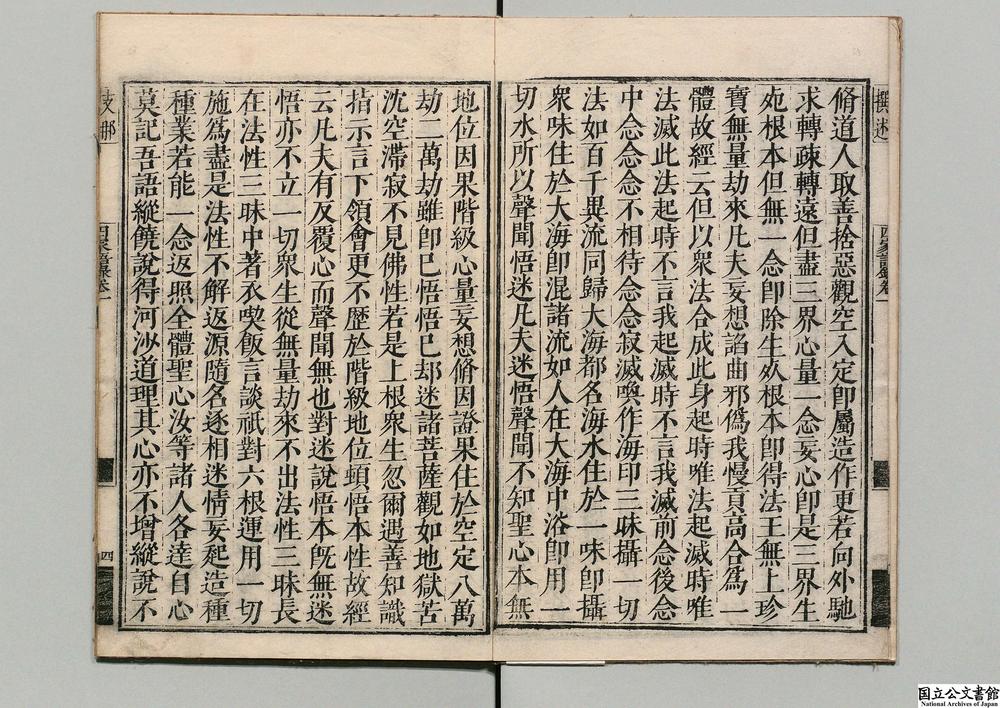 脩道人取善捨惡觀空入定卽屬造作更若向外馳
求轉疎轉遠但盡三界心量一念妄心卽是三界生
死根本但無一念卽除生死根本卽得法王無上珍
寶無量劫來凡夫妄想謟曲邪僞我慢貢高合爲一
體故經云但以衆法合成此身起時唯法起滅時唯
法滅此法起時不言我起滅時不言我滅前念後念
中念念念不相待念念寂滅喚作海印三昧攝一切
法如百千異流同歸大海都名海水住於一味卽攝
衆味住於大海卽混諸流如人在大海中浴卽用一
切水所以聲聞悟迷凡夫迷悟聲聞不知聖心本無
地位因果階級心量妄想脩因證果住於空定八萬
劫二萬劫雖卽已悟悟已却迷諸菩薩觀如地獄苦
沈空滯寂不見佛性若是上根衆生忽爾遇善知識
指示言下領會更不歷於階級地位頓悟本性故經
云凡夫有反覆心而聲聞無也對迷說悟本旣無迷
悟亦不立一切衆生從無量劫來不出法性三昧長
在法性三昧中著衣喫飯言談祇對六根運用一切
施爲盡是法性不解返源隨名逐相迷情妄起造種
種業若能一念返照全體聖心汝等諸人各達自心
莫記吾語縱饒說得河沙道理其心亦不增縱說不
四家語錄卷一
四
国立公文書館
National Archives of Japan